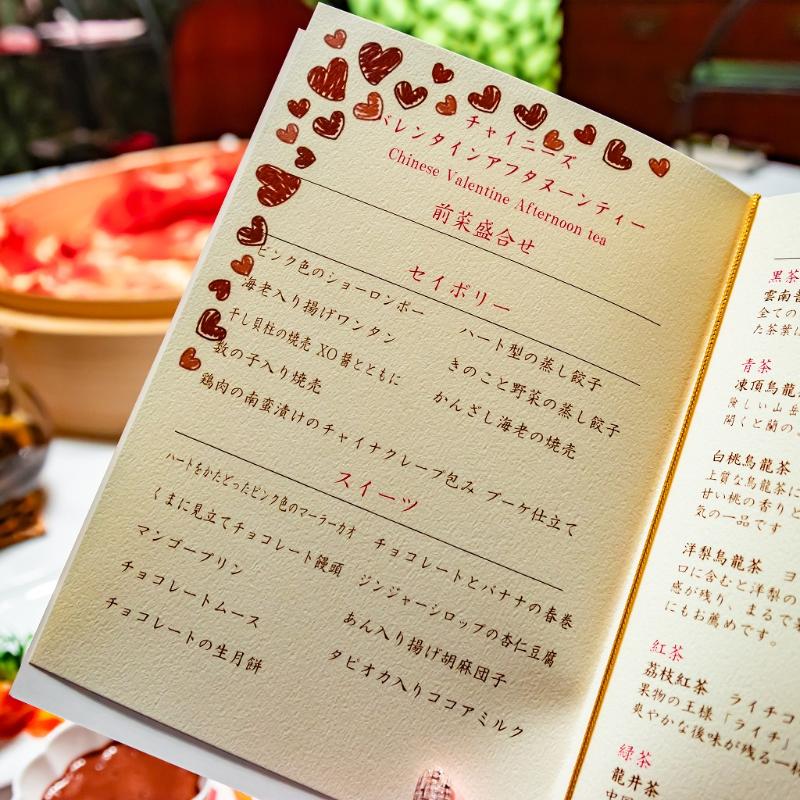 チャイニーズ
バレンタインアフタヌーンティー
Chinese Valentine Afternoon tea
前菜盛合せ
セイボリー
ピンク色のショーロンポー
ハート型の蒸し餃子
海老入り揚げワンタン
きのこと野菜の蒸し餃子
干し貝柱の焼売 XO醤とともに
かんざし海老の焼売
数の子入り焼売
鶏肉の南蛮漬けのチャイナクレープ包み ブーケ仕立て
スイーツ
ハートをかたどったピンク色のマーラーカオ
チョコレートとバナナの春巻
くまに見立てチョコレート饅頭
ジンジャーシロップの杏仁豆腐
マンゴープリン
あん入り揚げ胡麻団子
チョコレートムース
タピオカ入りココアミルク
チョコレートの生月餅
黒茶
雲南普
全ての
た茶葉
青茶
凍頂烏龍
険しい山岳
開くと蘭の
白桃烏龍茶
上質な烏龍茶に
甘い桃の香りと
気の一品です
洋梨烏龍茶 ヨ
口に含むと洋梨の
感が残り、まるで
にもお薦めです。
紅茶
荔枝紅茶 ライチコ
果物の王様「ライチ」
爽やかな後味が残る一
緑茶
龍井茶
中国